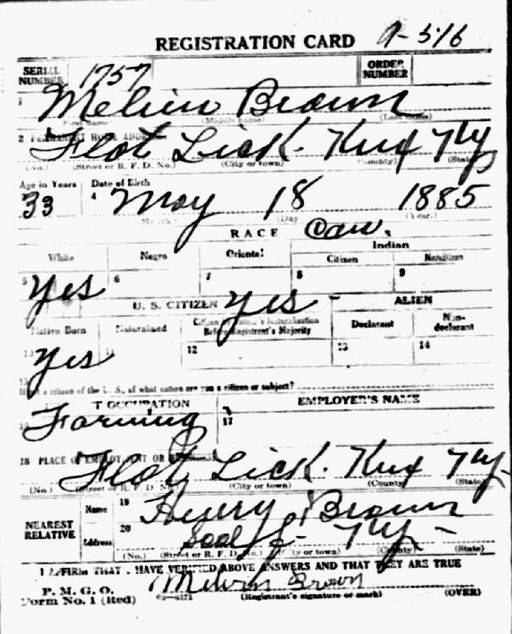 REGISTRATION CARD A-516
SERIAL NUMBER 1757 ORDER NUMBER
1 Melvin Brown
First name (Middle name) (Last name)
2 PERMANENT HOME ADDRESS
Flat Lick. Knx Ky
(No.) (Street or R. F. D. No.) (City or town) (County) (State)
Age in Years Date of Birth
33 4 May 18 1885
Month (Day (Year.)
RACE Cau.
White Negro Oriental Indian
Citizen Noncitizen
5 Yes 6 7 8 9
U. S. CITIZEN Yes - ALIEN
Native Born Naturalized Citizen by Father's Naturalization Before Registrant's Majority Declarant Non-declarant
Yes 11 12 13 14
15 If not a citizen of the U. S., of what nation are you a citizen or subject?
T OCCUPATION EMPLOYER'S NAME
Farming 17
18 PLACE OF EMPLOYMENT OR BUSINESS
Flat Lick. Knx Ky-
(No.) (Street or R. F. D. No.) (City or town) (County) (State)
NEAREST RELATIVE Name 19 Henry Brown
Address 20 Ky-
(No.) (Street or R. F. D. No.) (City or town) (County) (State)
I AFFIRM THAT I HAVE VERIFIED ABOVE ANSWERS AND THAT THEY ARE TRUE
P. M. G. O.
Form No. 1 (Red) Melvin Brown
(Registrant's signature or mark) (OVER)